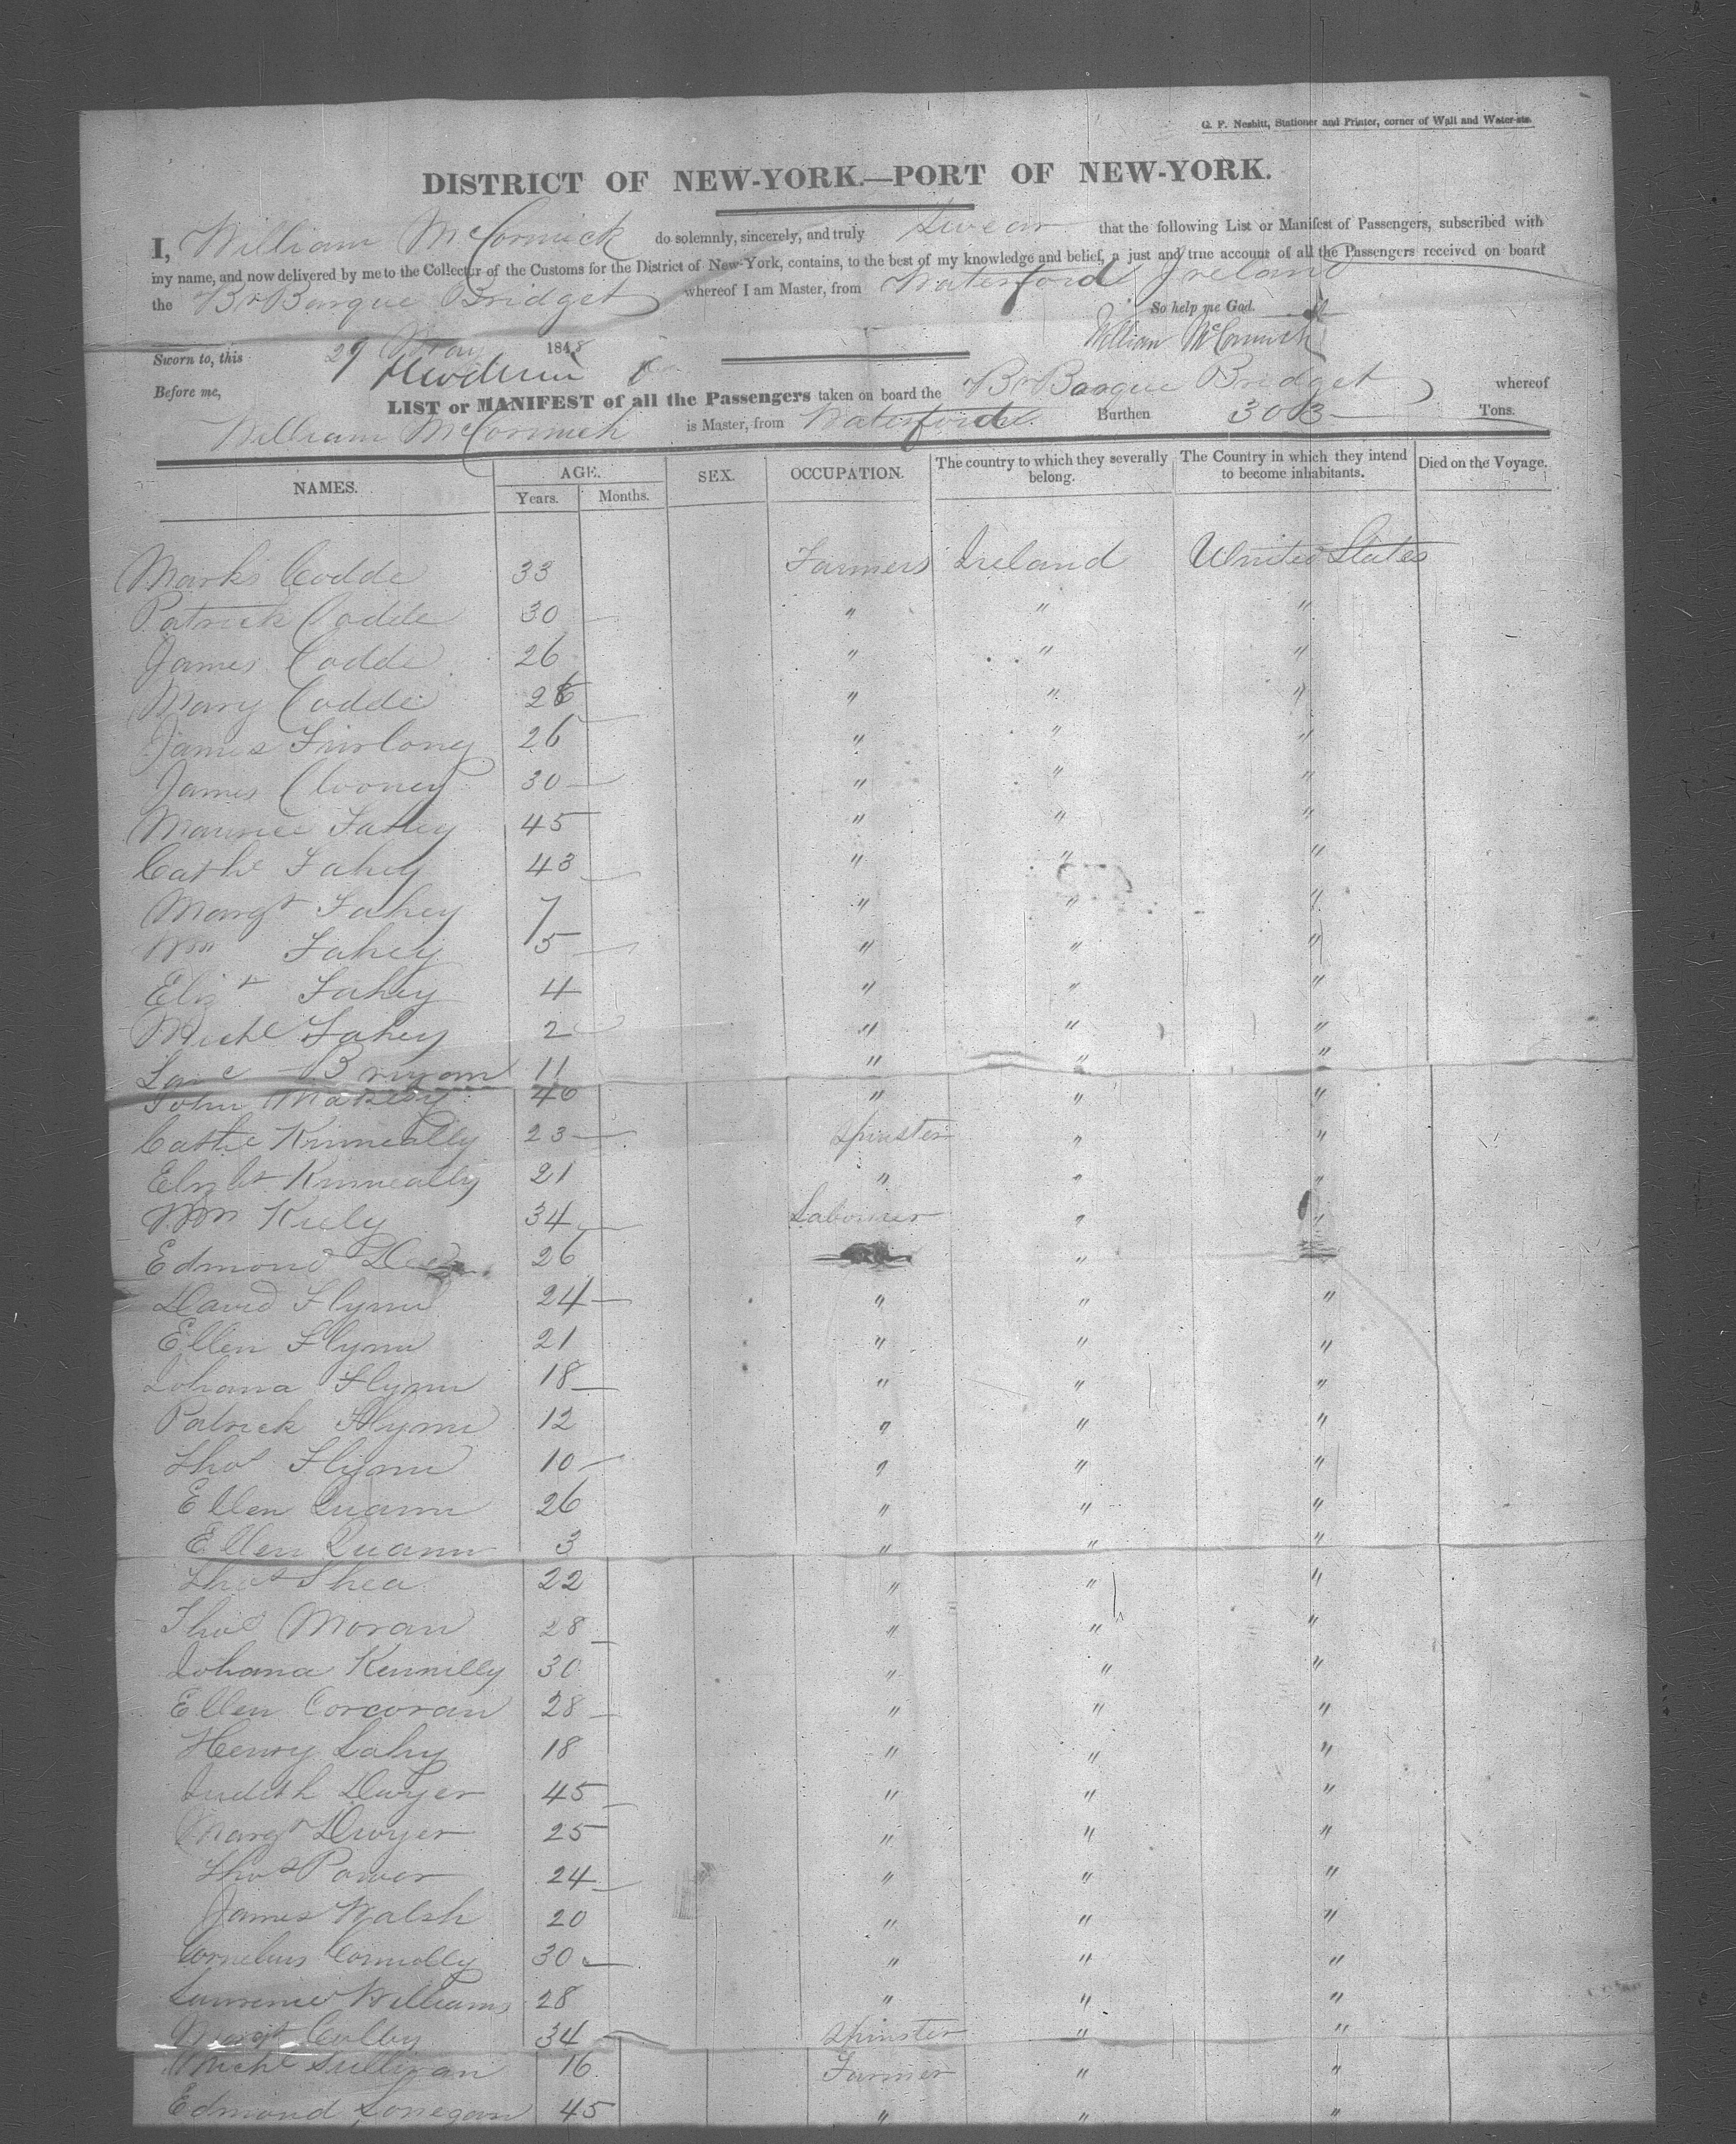 G. F. Nesbitt, Stationer and Printer, corner of Wall and Water-sts.
DISTRICT OF NEW-YORK.—PORT OF NEW-YORK.
I, William McCormick do solemnly, sincerely, and truly swear that the following List or Manifest of Passengers, subscribed with
my name, and now delivered by me to the Collector of the Customs for the District of New-York, contains, to the best of my knowledge and belief, a just and true account of all the Passengers received on board
the Br Barque Bridget whereof I am Master, from Waterford Ireland
So help me God.
William McCormick
Sworn to, this 29 May 1848
Before me,
LIST or MANIFEST of all the Passengers taken on board the Br Barque Bridget whereof
William McCormick is Master, from Waterford Burthen 303 Tons.
NAMES. AGE. Years. Months. SEX. OCCUPATION. The country to which they severally belong. The Country in which they intend to become inhabitants. Died on the Voyage.
Marks Codde 33 Farmers Ireland United States
Patrick Codde 30 " " "
James Codde 26 " " "
Mary Codde 26 " " "
James Furlong 26 " " "
James Clooney 30 " " "
Maurice Fahey 45 " " "
Cathe Fahey 43 " " "
Margt Fahey 7 " " "
Wm Fahey 5 " " "
Elizt Fahey 4 " " "
Michl Fahey 2 " " "
11 " " "
John 40 " " "
Cathe Kinneally 23 Spinster " "
Elizbt Kinneally 21 " " "
Wm Kiely 34 Labourer " "
Edmond 26 "
David Flynn 24 " " "
Ellen Flynn 21 " " "
Johana Flynn 18 " " "
Patrick Flynn 12 " " "
Thos Flynn 10 " " "
Ellen Quann 26 " " "
Ellen Quann 3 " " "
Thos Shea 22 " " "
Thos Moran 28 " " "
Johana Kennilly 30 " " "
Ellen Corcoran 28 " " "
Henry Lahy 18 " " "
Judith Dwyer 45 " " "
Margt Dwyer 25 " " "
Thos Power 24 " " "
James Walsh 20 " " "
Cornelius Connolly 30 " " "
Lawrence Williams 28 " " "
Margt Culby 34 Spinster " "
Michl Sullivan 16 Farmer " "
Edmond Lonegan 45 " " "